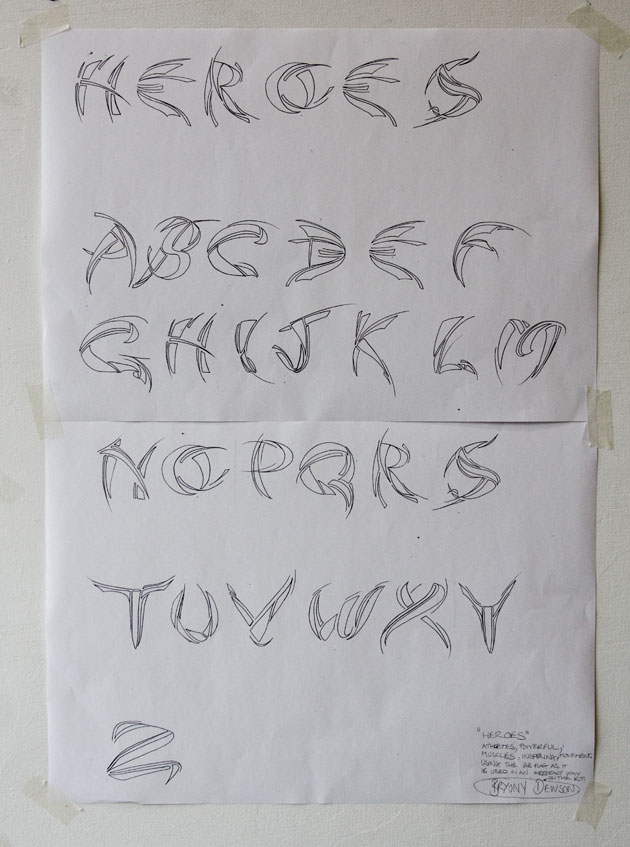 HEROES
ABCDEF
GHIJKLM
NOPQRS
TUVWXY
Z
"HEROES"
ATHLETES, POWERFUL,
MUSCLES, INSPIRING, MOVEMENT
USING THE GB FLAG AS IT
IS USED IN AN ABSTRACT WAY
ON THE KIT.
BRYONY DEWSON